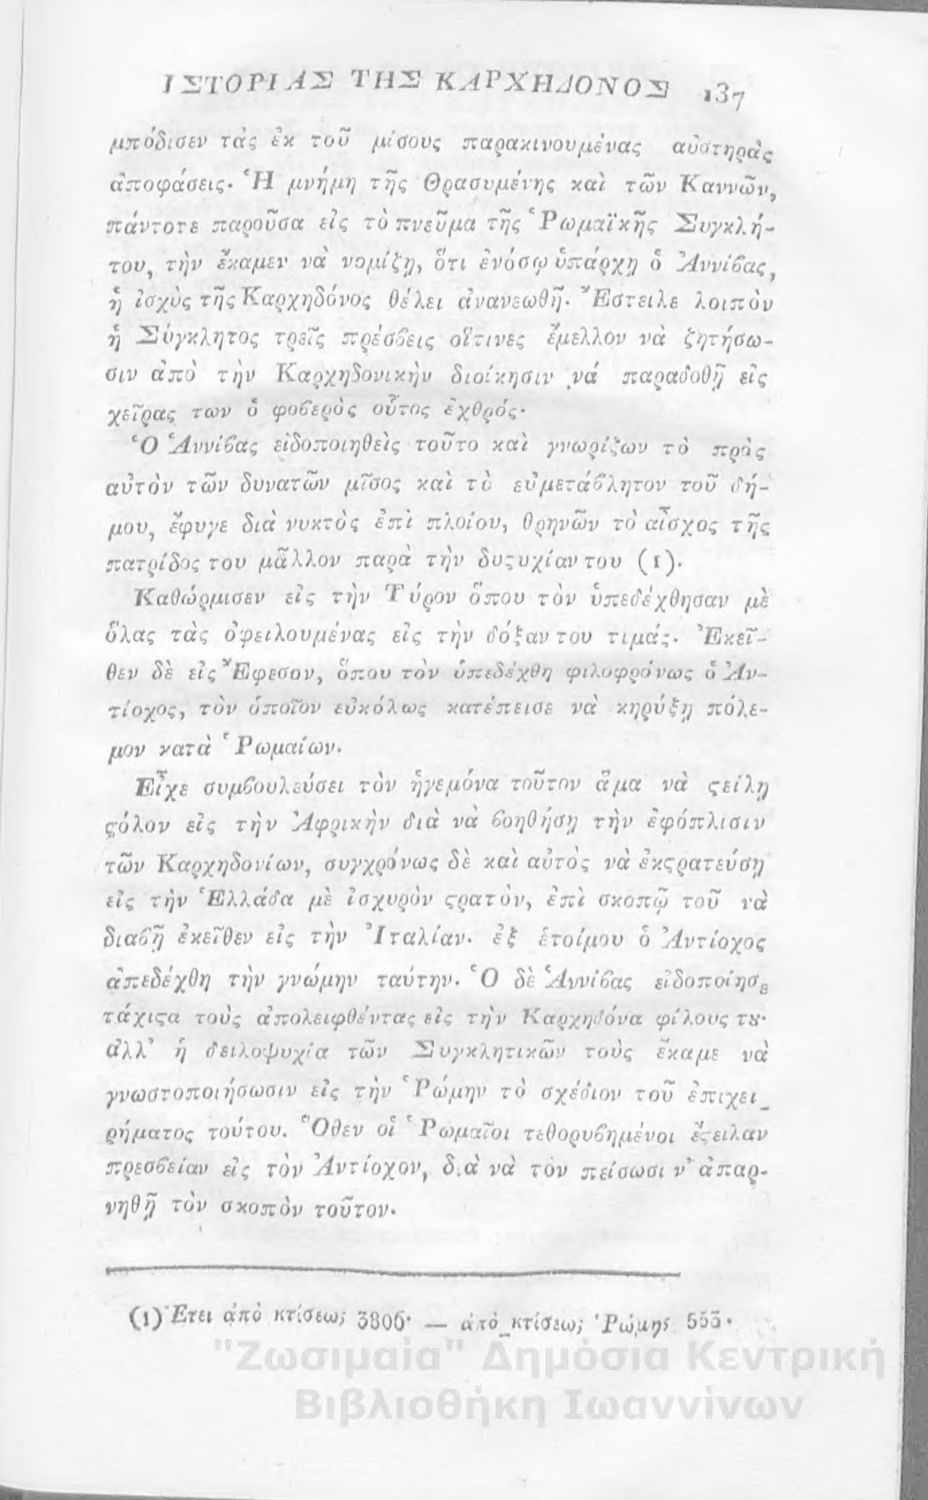 ΙΣΤΟΡΙΑΣ ΤΗΣ ΚΑΡΧΗΔΟΝΟΣ 137
μπόδισεν τὰς ἐκ τοῦ μίσους παρακινουμένας αὐστηρὰς
ἀποφάσεις· Ἡ μνήμη τῆς Θρασυμένης καὶ τῶν Καννῶν,
πάντοτε παροῦσα εἰς τὸ πνεῦμα τῆς Ῥωμαϊκῆς Συγκλή-
του, τὴν ἔκαμεν νὰ νομίζῃ, ὅτι ἐνόσῳ ὑπάρχῃ ὁ Ἀννίβας,
ἡ ἰσχὺς τῆς Καρχηδόνος θέλει ἀνανεωθῆ· Ἔστειλε λοιπὸν
ἡ Σύγκλητος τρεῖς πρέσβεις οἵτινες ἔμελλον νὰ ζητήσω-
σιν ἀπὸ τὴν Καρχηδονικὴν διοίκησιν νά παραδοθῇ εἰς
χεῖρας των ὁ φοβερὸς οὗτος ἐχθρός·
Ὁ Ἀννίβας εἰδοποιηθεὶς τοῦτο καὶ γνωρίζων τὸ πρὸς
αὐτὸν τῶν δυνατῶν μῖσος καὶ τὸ εὐμετάβλητον τοῦ δή-
μου, ἔφυγε διὰ νυκτὸς ἐπὶ πλοίου, θρηνῶν τὸ αἶσχος τῆς
πατρίδος του μᾶλλον παρὰ τὴν δυςυχίαν του (1).
Καθώρμισεν εἰς τὴν Τύρον ὅπου τὸν ὑπεδέχθησαν μὲ
ὅλας τὰς ὀφειλουμένας εἰς τὴν δόξαν του τιμάς· Ἐκεῖ-
θεν δὲ εἰς Ἔφεσον, ὅπου τὸν ὑπεδέχθη φιλοφρόνως ὁ Ἀν-
τίοχος, τὸν ὁποῖον εὐκόλως κατέπεισε νὰ κηρύξῃ πόλε-
μον κατὰ Ῥωμαίων.
Εἶχε συμβουλεύσει τὸν ἡγεμόνα τοῦτον ἅμα νὰ ςείλῃ
ςόλον εἰς τὴν Ἀφρικὴν διὰ νὰ βοηθήσῃ τὴν ἐφόπλισιν
τῶν Καρχηδονίων, συγχρόνως δὲ καὶ αὐτὸς νὰ ἐκςρατεύσῃ
εἰς τὴν Ἑλλάδα μὲ ἰσχυρὸν ςρατὸν, ἐπὶ σκοπῷ τοῦ νὰ
διαβῇ ἐκεῖθεν εἰς τὴν Ἰταλίαν· ἐξ ἑτοίμου ὁ Ἀντίοχος
ἀπεδέχθη τὴν γνώμην ταύτην. Ὁ δὲ Ἀννίβας εἰδοποίησε
τάχιςα τοὺς ἀπολειφθέντας εἰς τὴν Καρχηδόνα φίλους τȣ·
ἀλλ' ἡ δειλοψυχία τῶν Συγκλητικῶν τοὺς ἔκαμε νὰ
γνωστοποιήσωσιν εἰς τὴν Ῥώμην τὸ σχέδιον τοῦ ἐπιχει_
ρήματος τούτου. Ὅθεν οἱ Ῥωμαῖοι τεθορυβημένοι ἔςειλαν
πρεσβείαν εἰς τὸν Ἀντίοχον, διὰ νὰ τὸν πείσωσι ν' ἀπαρ-
νηθῇ τὸν σκοπὸν τοῦτον·
(1) Ἔτει ἀπὸ κτίσεως 3806· — ἀπὸ κτίσεως Ῥώμης 555·
"Ζωσιμαία" Δημόσια Κεντρική
Βιβλιοθήκη Ιωαννίνων